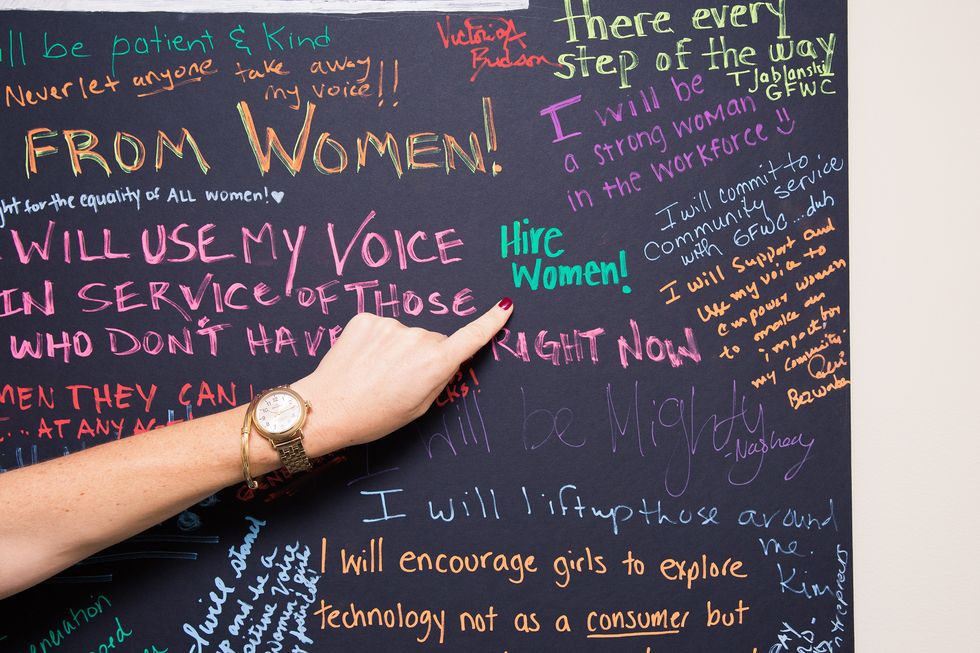 ll be patient & Kind
Never let anyone take away
my voice!!
FROM WOMEN!
ght for the equality of ALL women! ♥
I WILL USE MY VOICE
IN SERVICE OF THOSE
WHO DON'T HAVE
RIGHT NOW
MEN THEY CAN
AT ANY AGE
Victoria
Budson
There every
step of the way
T Jablansky
GFWC
I will be
a strong woman
in the workforce
I will commit to
community service
with GFWC...duh
Hire
Women!
I will Support and
use my voice to
empower women
to make an
impact for
my community
I will be Mighty
I will lift up those around
me.
Kim
I will encourage girls to explore
technology not as a consumer but
I will stand
up and be a
positive voice
for
eneration